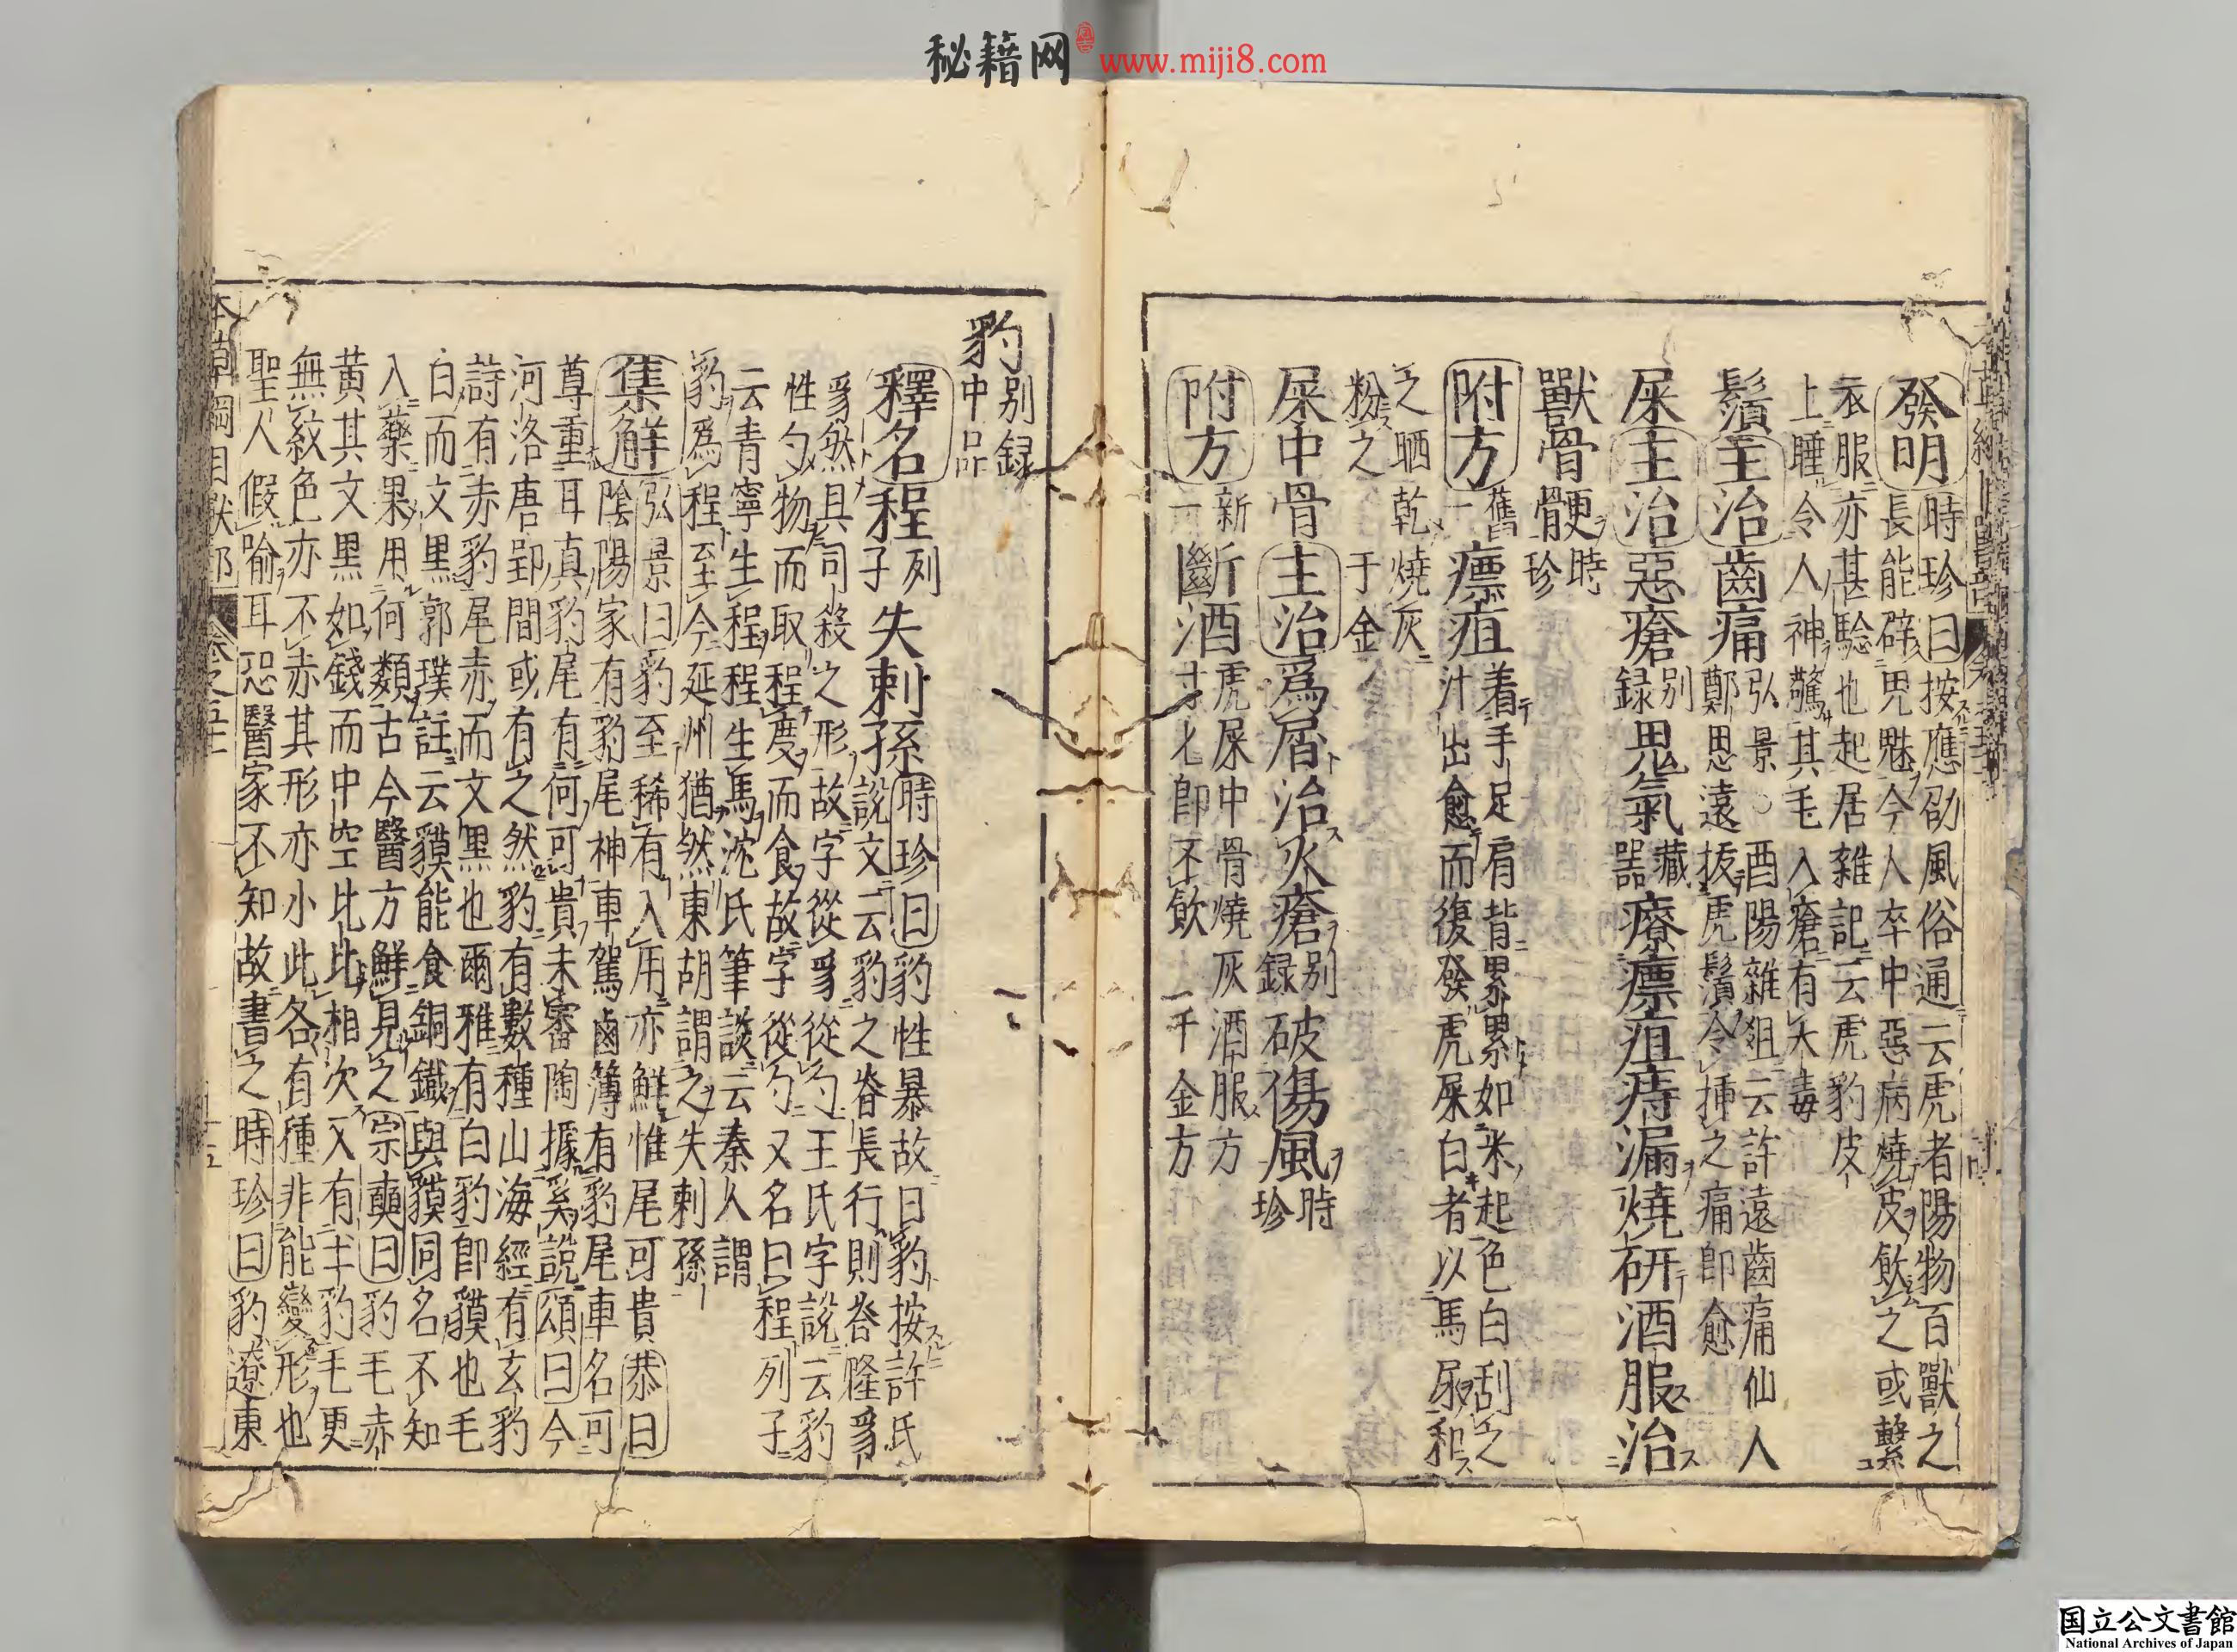 秘籍网 www.miji8.com
發明時珍曰按應劭風俗通云虎者陽物百獸之
長能辟鬼魅今人卒中惡病燒皮飲之或繫
衣服亦甚驗也起居雜記云虎豹皮
上睡令人神驚其毛入瘡有大毒
鬚主治齒痛弘景○酉陽雜俎云許遠齒痛仙人
鄭思遠拔虎鬚令挿之痛即愈
屎主治惡瘡别録鬼氣藏器療瘭疽痔漏燒研酒服治
獸骨骾時珍
附方舊一瘭疽着手足肩背累累如米起色白刮之
汁出愈而復發虎屎白者以馬尿和
之晒乾燒灰
粉之千金
屎中骨主治爲屑治火瘡别録破傷風時珍
附方新一斷酒虎屎中骨燒灰酒服方
寸匕即不飲千金方
豹别録中品
釋名程列子失刺孫時珍曰豹性暴故曰豹按許氏
說文云豹之脊長行則脊隆豸
豸然具司殺之形故字從豸從勺王氏字說云豹
性勺物而取程度而食故字從勺又名曰程列子
云青寧生程程生馬沈氏筆談云秦人謂
豹爲程至今延州猶然東胡謂之失刺孫
集解弘景曰豹至稀有入用亦鮮惟尾可貴恭曰
陰陽家有豹尾神車駕鹵簿有豹尾車名可
尊重耳真豹尾有何可貴未審陶據奚說頌曰今
河洛唐郢間或有之然豹有數種山海經有玄豹
詩有赤豹尾赤而文黑也爾雅有白豹即貘也毛
白而文黑郭璞註云貘能食銅鐵與貘同名不知
入藥果用何類古今醫方鮮見之宗奭曰豹毛赤
黃其文黑如錢而中空比比相次又有土豹毛更
無紋色亦不赤其形亦小此各有種非能變形也
聖人假喻耳恐醫家不知故書之時珍曰豹遼東
国立公文書館
National Archives of Japan